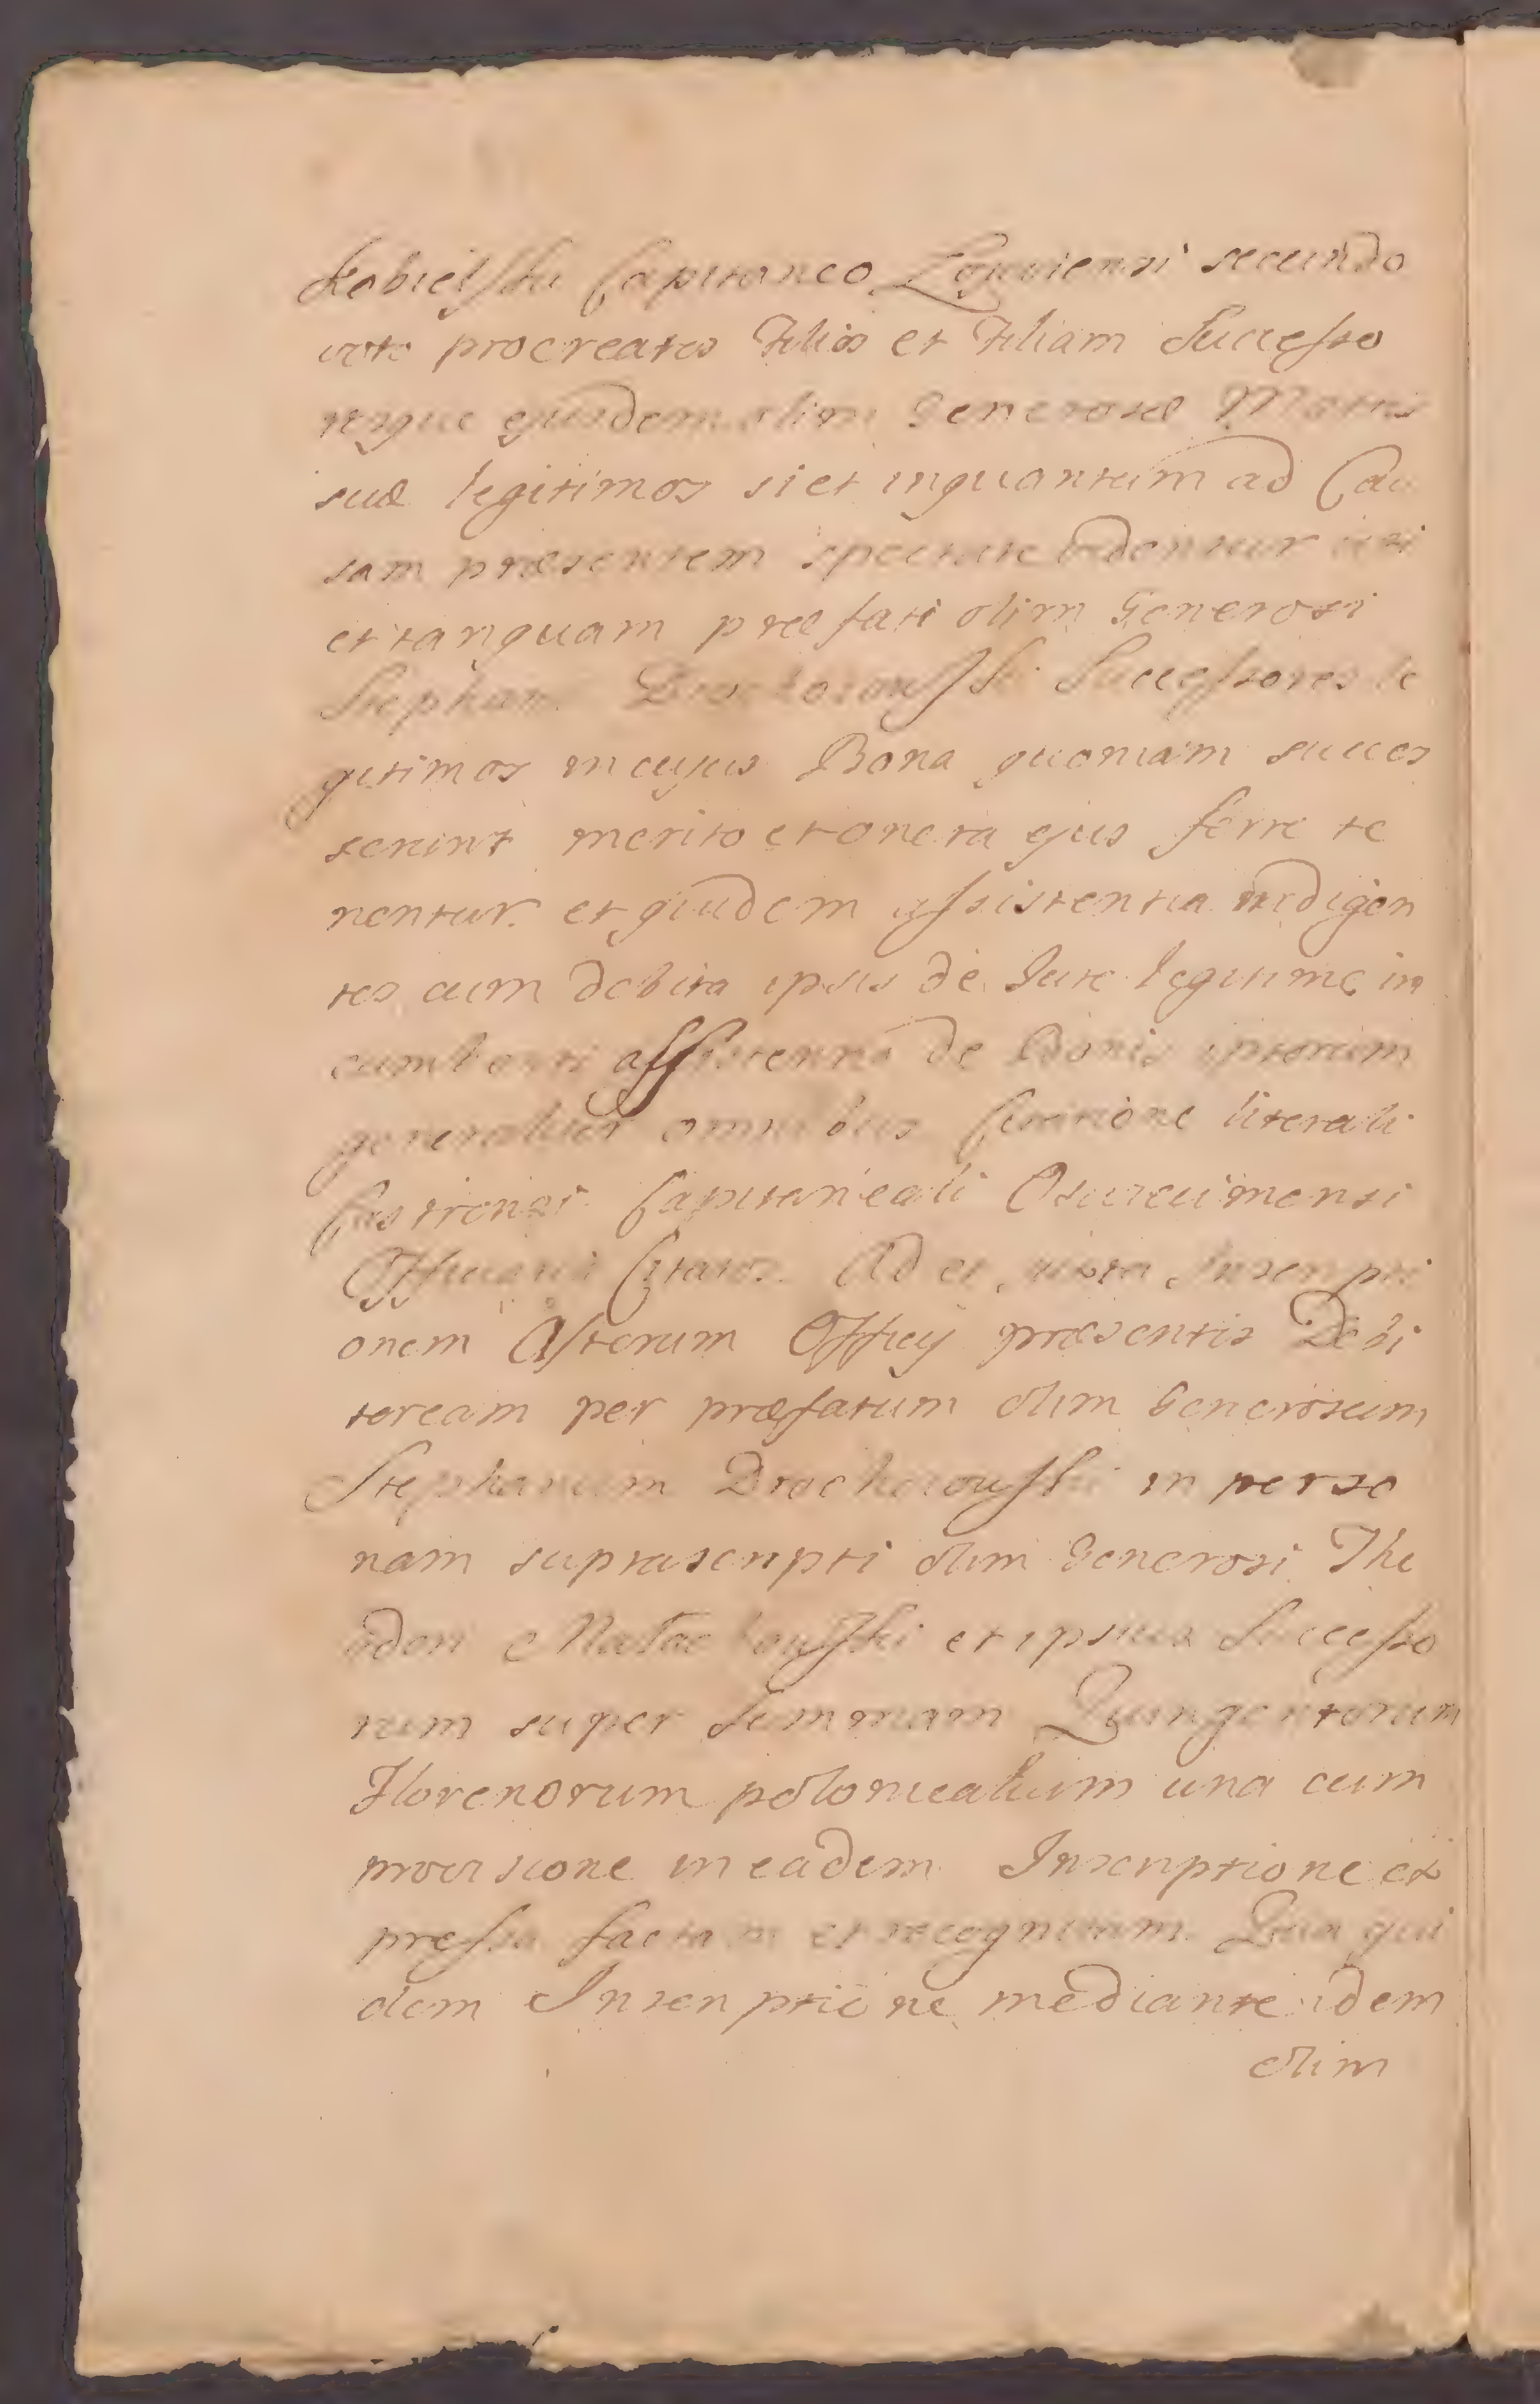 Kobielski Capitaneo Zgoviensi secundo
voto procreatos Filios et Filiam Successo
resque ejusdem olim Generosæ Matris
suæ legitimos si et inquantum ad Cau
sam præsentem spectare videntur uti
et tanquam præfati olim Generosi
Stephani Drochoiowski Successores le
gitimos in cujus Bona quoniam succes
serunt merito et onera ejus ferre te
nentur et quidem assistentia indigen
tes cum debita ipsis de Jure legitime in
cumbenti assistentia de Bonis ipsorum
generaliter omnibus Citatione literali
Castrensi Capitaneali Osviecimensi
Officiose Citatos. Ad et juxta Inscripti
onem Actorum Officy præsentis Debi
toream per præfatum olim Generosum
Stephanum Drochoiowski in perso
nam suprascripti olim Generosi The
odori Małachowski et ipsius Successo
rum super Summam Quingentorum
Florenorum polonicalium una cum
provisione in eadem Inscriptione ex
pressa factam et recognitam. Qua qui
dem Inscriptione mediante idem
olim